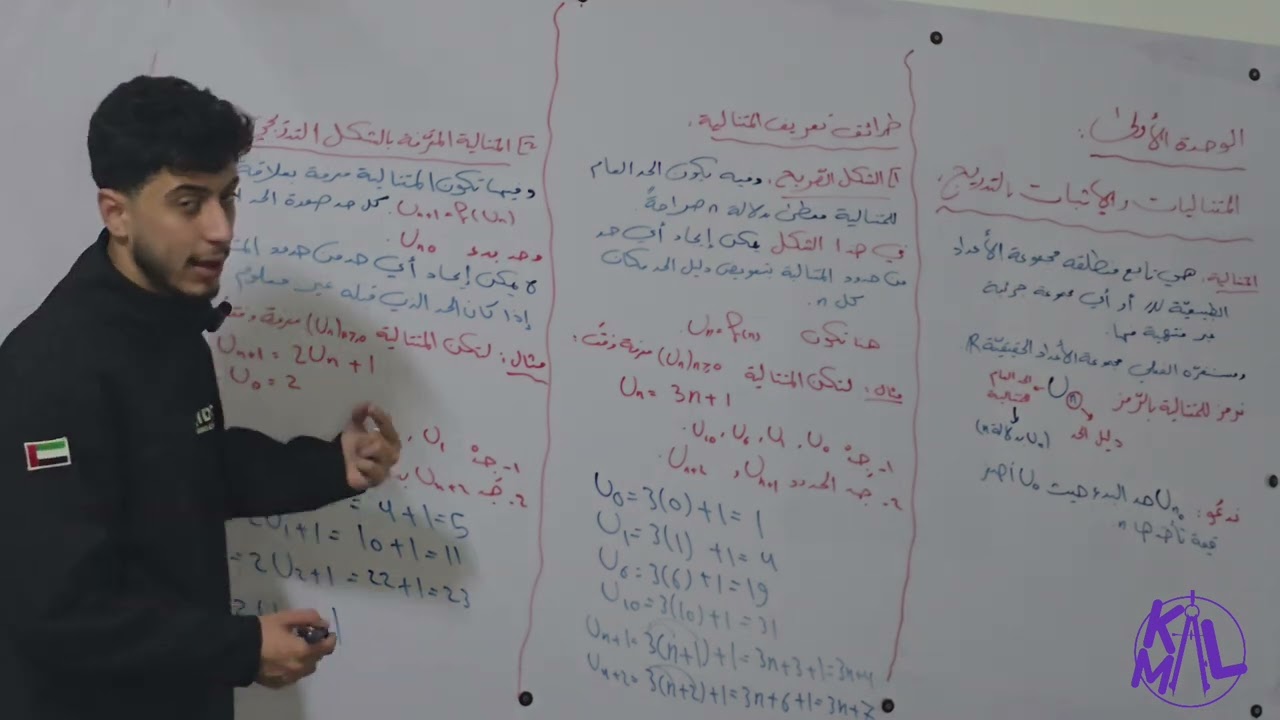 الوحدة الأولى:
المتتاليات والإثبات بالتدريج.
المتتالية: هي تابع منطلقه مجموعة الأعداد
الطبيعية أو أي مجموعة جزئية
غير منتهية منها.
ومستقره الفعلي مجموعة الأعداد الحقيقية R
نرمز للمتتالية بالرمز Un
الحد العام
للمتتالية
دليل الحد
(Un بدلالة n)
ندعو: Un0 حد البدء حيث n0 أصغر
قيمة تأخذها n
طرائق تعريف المتتالية:
1] الشكل الصريح: وفيه يكون الحد العام
للمتتالية معطى بدلالة n صراحةً
في هذا الشكل يمكن إيجاد أي حد
من حدود المتتالية بتعويض دليل الحد مكان
كل n.
هنا تكون Un = f(n)
مثال: لتكن المتتالية (Un)n≥0 معرفة وفق:
Un = 3n+1
1- جد U0, U1, U6, U10.
2. جد الحدود Un+1 و Un+2.
U0 = 3(0)+1 = 1
U1 = 3(1)+1 = 4
U6 = 3(6)+1 = 19
U10 = 3(10)+1 = 31
Un+1 = 3(n+1)+1 = 3n+3+1 = 3n+4
Un+2 = 3(n+2)+1 = 3n+6+1 = 3n+7
2] المتتالية المعرّفة بالشكل التدريجي
وفيها تكون المتتالية معرفة بعلاقة
كل حد Un+1 = f(Un)
وحد بدء Un0
لا يمكن إيجاد أي حد من حدود
إذا كان الحد الذي قبله غير معلوم
مثال: لتكن المتتالية (Un)n≥0 معرفة
Un+1 = 2Un + 1
U0 = 2
1- جد U1
2. جد Un+2
= 4+1 = 5
2U1+1 = 10+1 = 11
= 2U2+1 = 22+1 = 23
KMAL